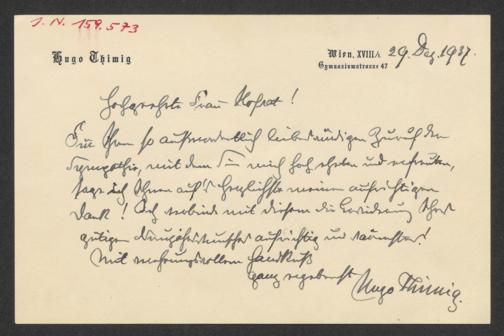 I. N. 159.573
Hugo Thimig
Wien, XVIII/1 29. Dez. 1937.
Gymnasiumstrasse 47
Hochgeehrte Frau Hofrat!
Für Ihren so außerordentlich liebenswürdigen Zuruf der
Sympathie, mit dem Sie mich hoch ehrten und erfreuten,
sage ich Ihnen auf's Herzlichste meinen aufrichtigen
Dank! Ich verbinde mit diesem die Erwiderung Ihrer
gütigen Neujahrswünsche aufrichtig und wärmstens!
Mit verehrungsvollem Handkuß
ganz ergebenst Hugo Thimig.